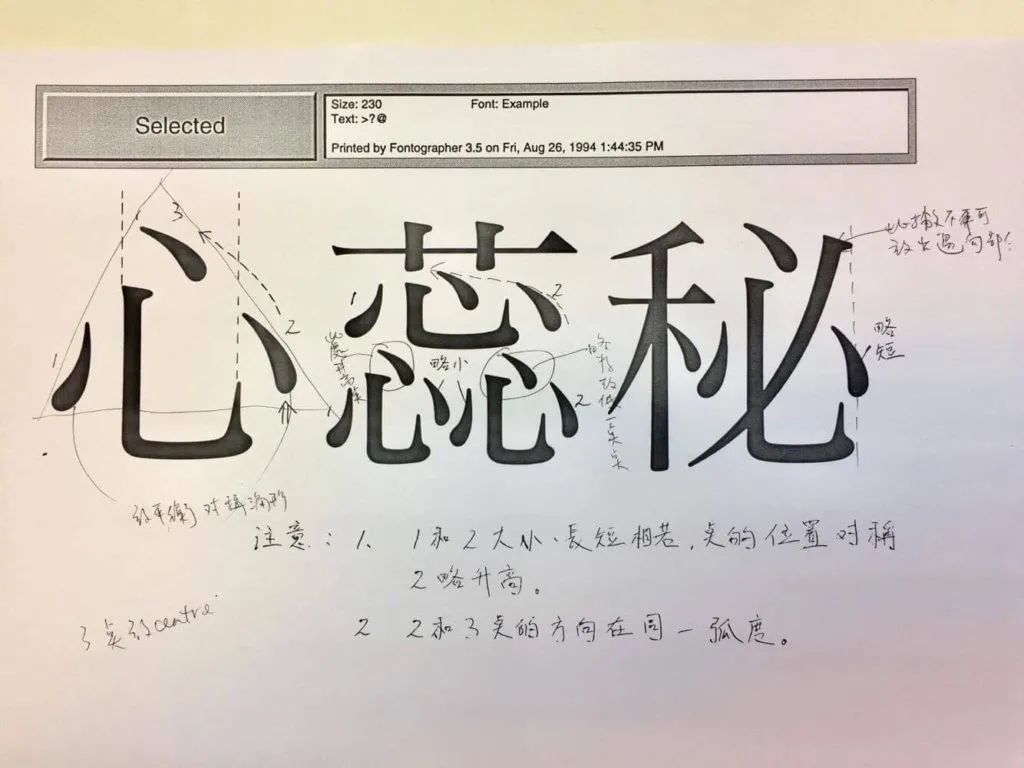 Selected
Size: 230 Font: Example
Text: >?@
Printed by Fontographer 3.5 on Fri, Aug 26, 1994 1:44:35 PM
心蕊秘
3
2
1
1
2
略小
2
略短
注意：1. 1和2大小、長短相若，点的位置对稱
2略升高。
2 2和3点的方向在同一弧度。
3点放centre